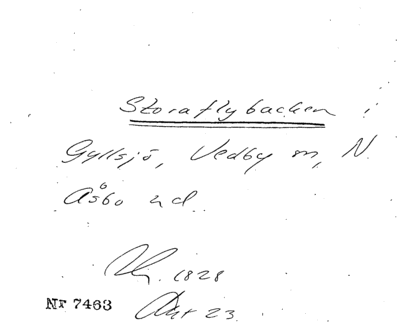 Storaflybacken i
Gyllsjö, Vedby sn, N.
Åsbo hd.
1828
Akt 23.
Nr 7463